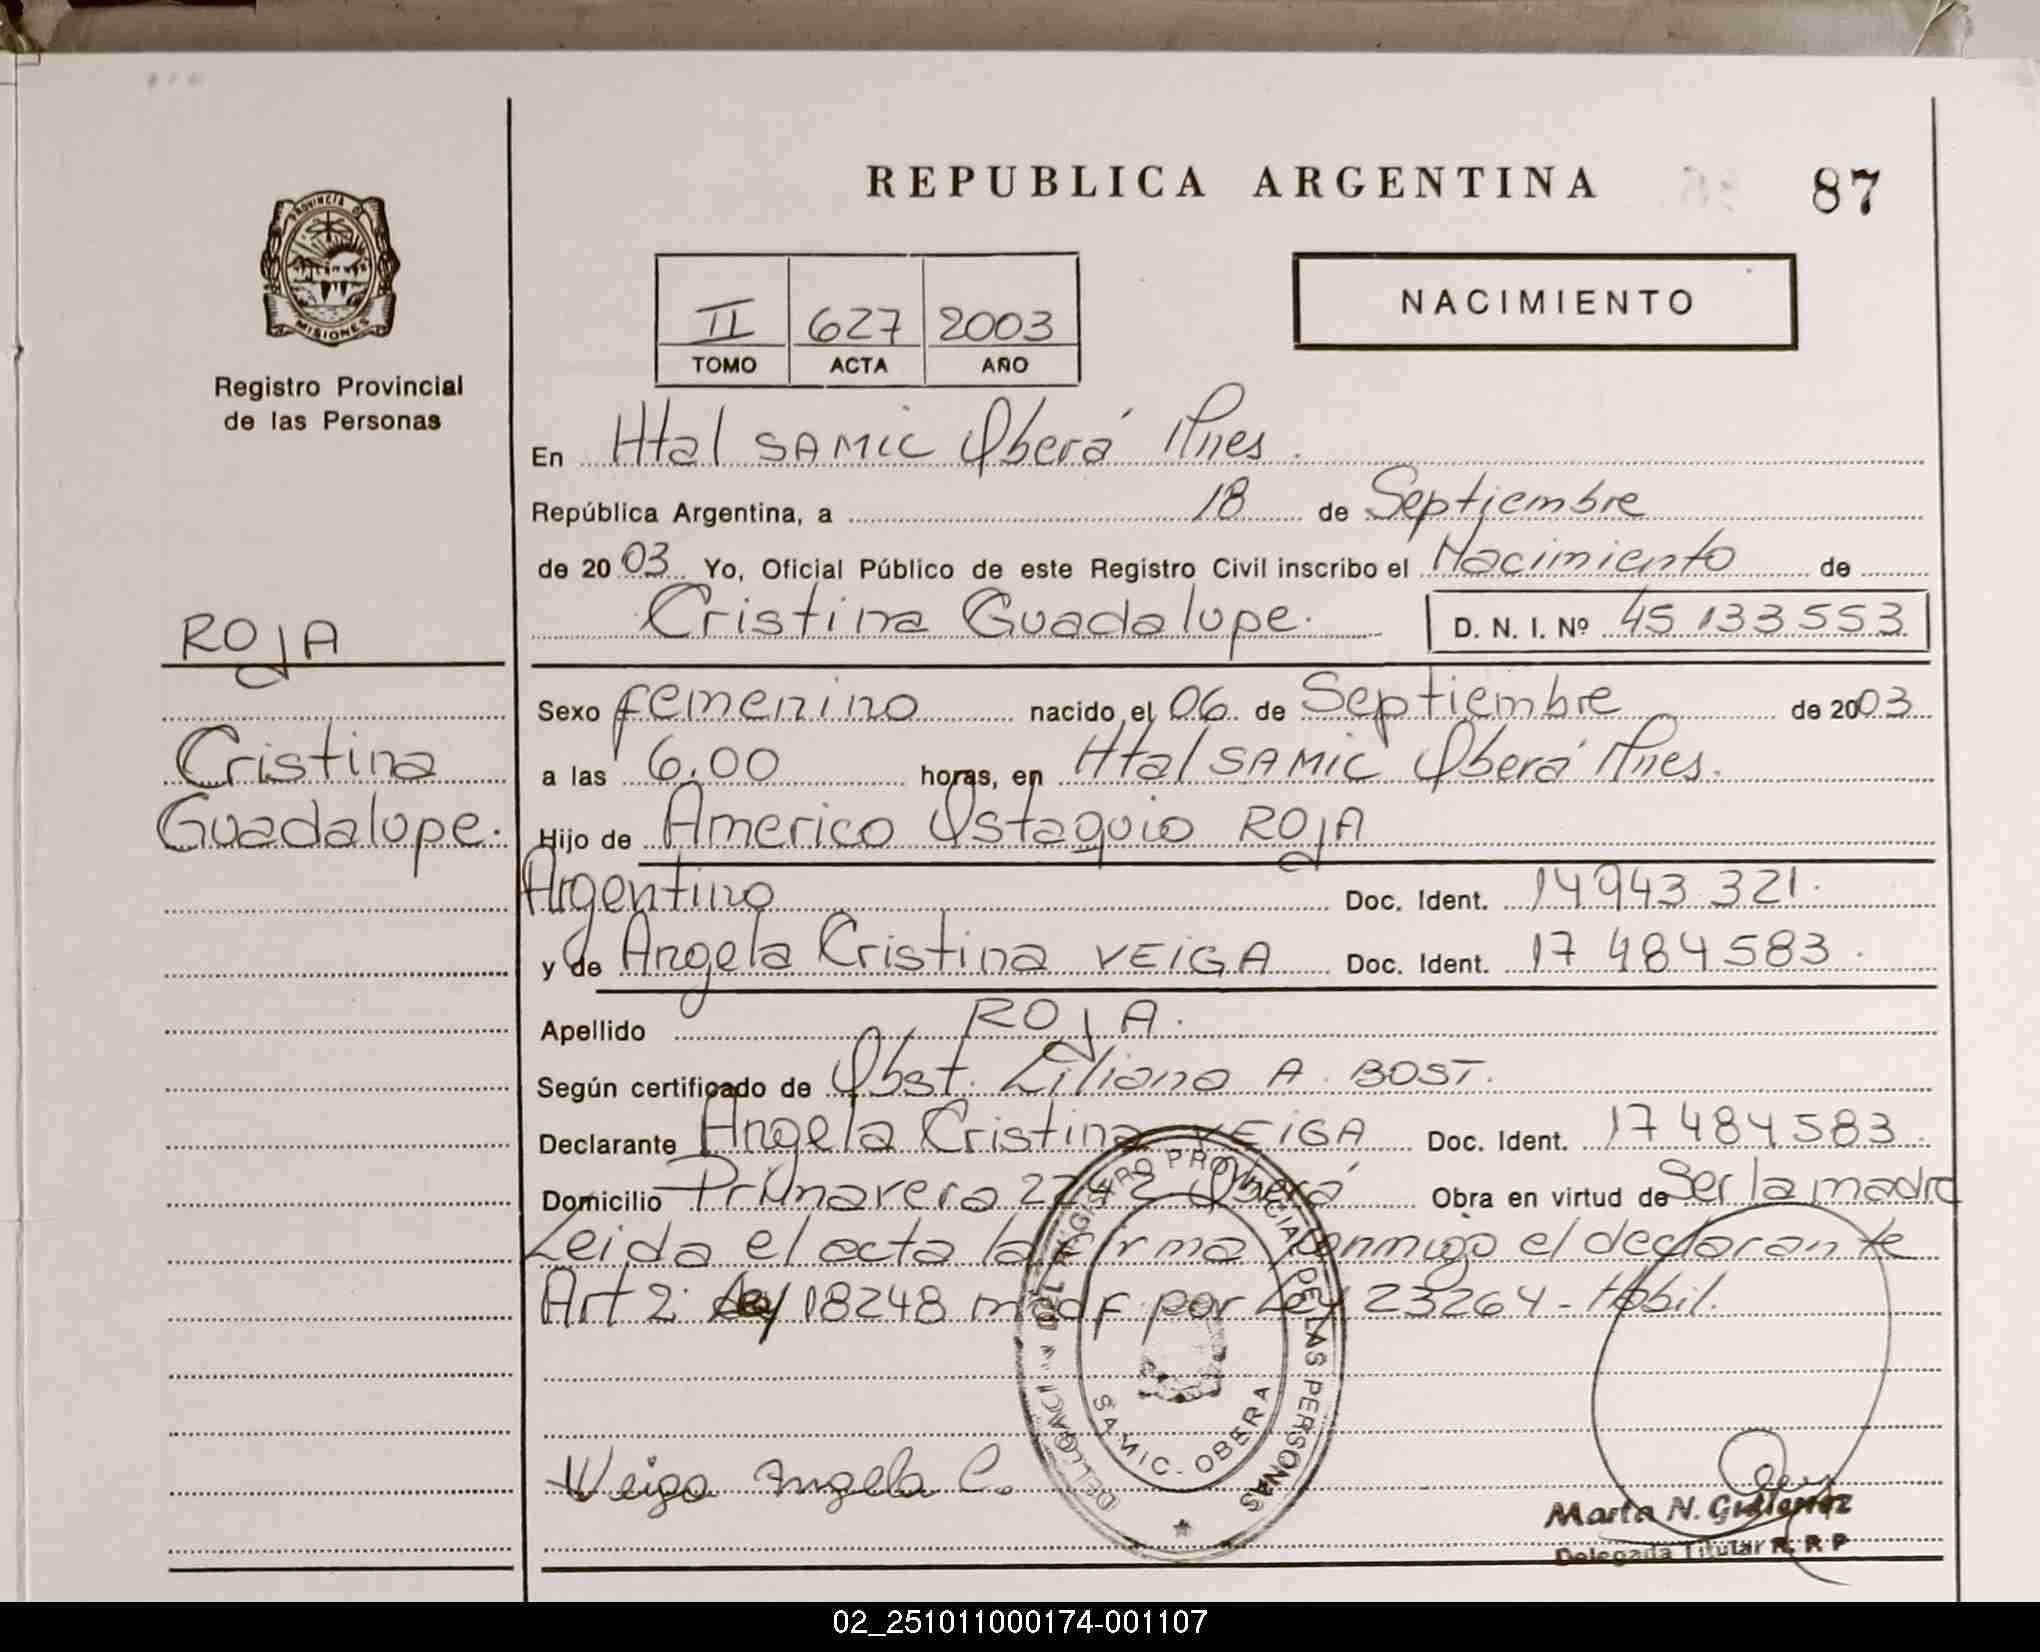 REPUBLICA ARGENTINA
87
PROVINCIA DE
MISIONES
Registro Provincial
de las Personas
II 627 2003
TOMO ACTA AÑO
NACIMIENTO
En Htal SAMIC Oberá Mnes.
República Argentina, a 18 de Septiembre
de 2003 Yo, Oficial Público de este Registro Civil inscribo el Nacimiento de
Cristina Guadalupe. D. N. I. Nº 45 133 553
ROJA
Cristina
Guadalupe.
Sexo femenino nacido el 06 de Septiembre de 2003
a las 6.00 horas, en Htal SAMIC Oberá Mnes.
Hijo de Americo Ostaquio ROJA
Argentino Doc. Ident. 14943 321.
y de Angela Cristina VEIGA Doc. Ident. 17 484583.
Apellido ROJA.
Según certificado de Obst. Liliana A. BOST.
Declarante Angela Cristina VEIGA Doc. Ident. 17 484583.
Domicilio Primavera 2242 Oberá Obra en virtud de Ser la madre
Leida el acta la firma conmigo el declarante
Art 2: Ley 18248 modf por Ley 23264 - Hábil.
DEL REGISTRO PROVINCIAL DE LAS PERSONAS
SAMIC - OBERA
Veiga Angela C.
Marta N. Gutierrez
Delegada Titular R. R P
02_251011000174-001107